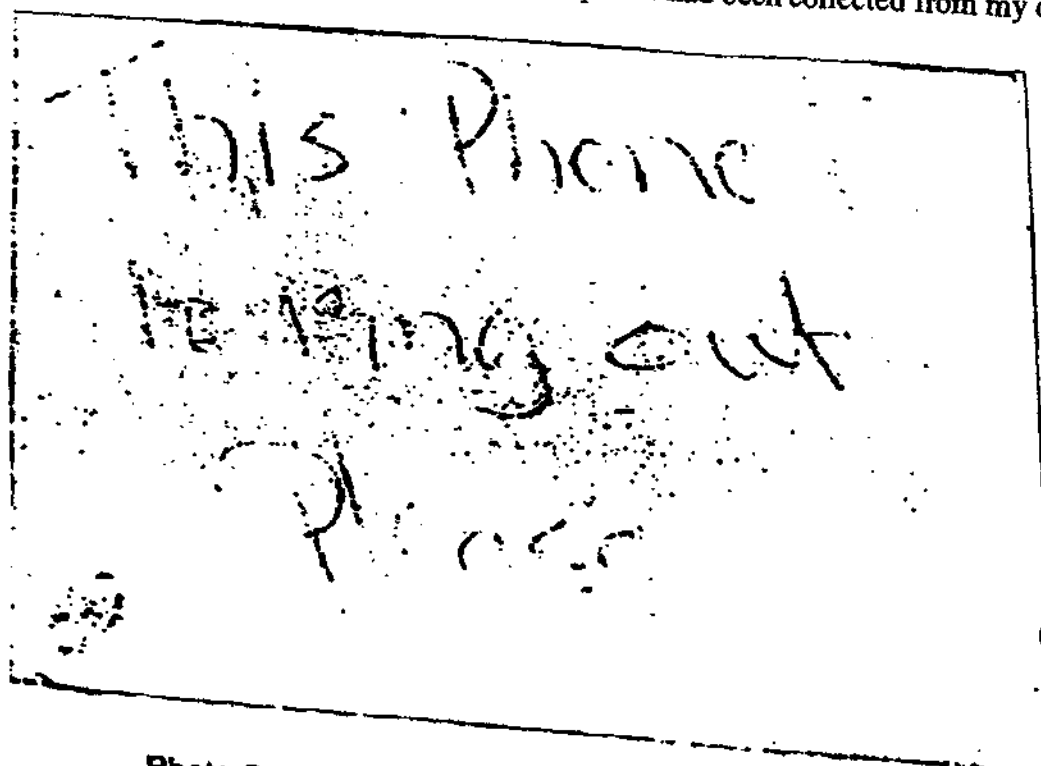 been collected from my
This Phone
out
Please
Photo